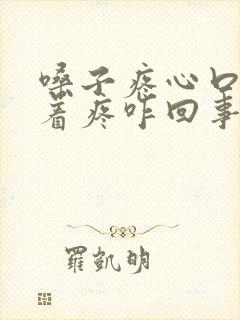 嗓子疼心口
着疼咋回事
羅凱明